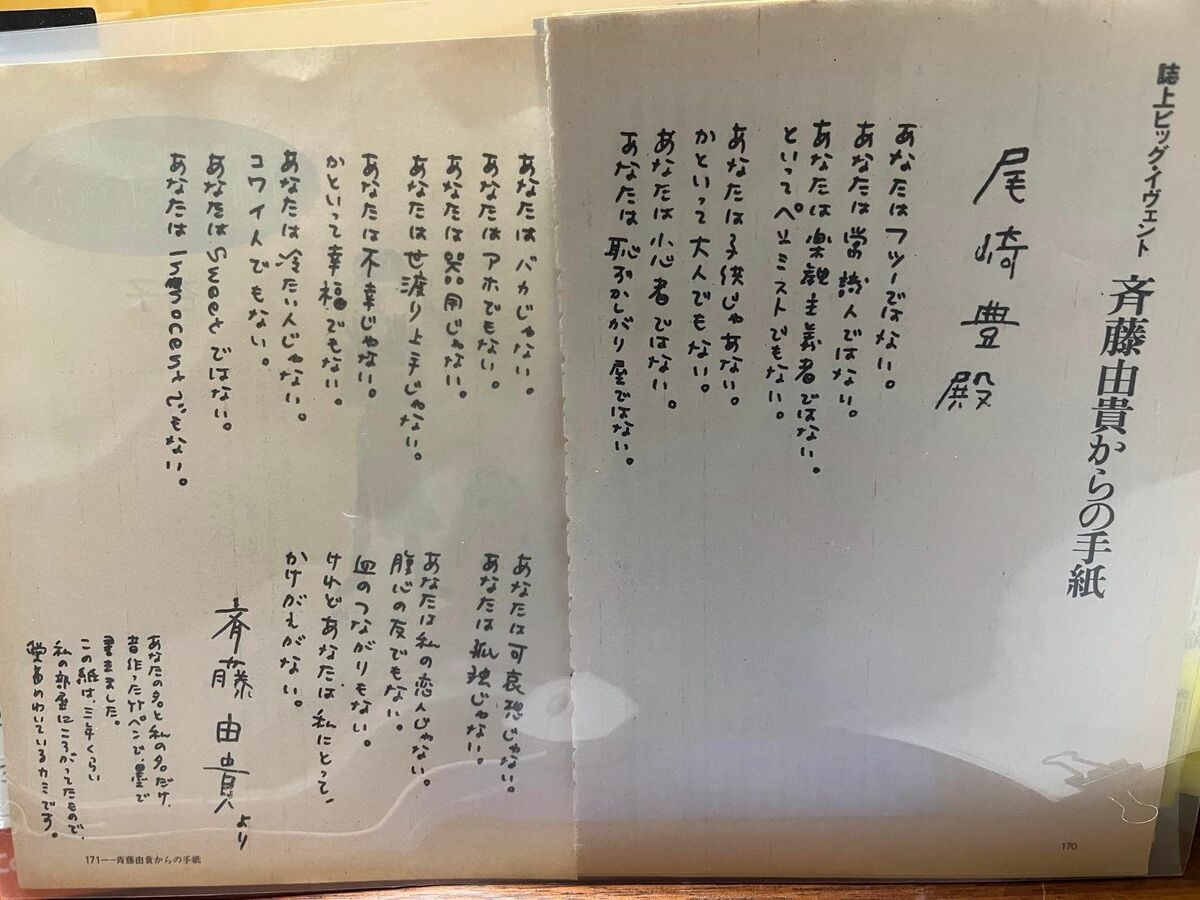 誌上ビッグ・イヴェント 斉藤由貴からの手紙
尾崎豊殿
あなたはフツーではない。
あなたは常識人ではない。
あなたは楽観主義者ではない。
といってペシミストでもない。
あなたは子供じゃあない。
かといって大人でもない。
あなたは小心者ではない。
あなたは恥ずかしがり屋ではない。
170
あなたはバカじゃない。
あなたはアホでもない。
あなたは器用じゃない。
あなたは世渡り上手じゃない。
あなたは不幸じゃない。
かといって幸福でもない。
あなたは冷たい人じゃない。
コワイ人でもない。
あなたはSweetではない。
あなたはInnocentでもない。
あなたは可哀想じゃない。
あなたは孤独じゃない。
あなたは私の恋人じゃない。
腹心の友でもない。
血のつながりもない。
けれどあなたは私にとって、
かけがえがない。
斉藤由貴より
あなたの名と私の名だけ、
昔作った竹ペンで、墨で
書きました。
この紙は、三年くらい
私の部屋にころがってたもので、
愛着のわいているカミです。
171──斉藤由貴からの手紙